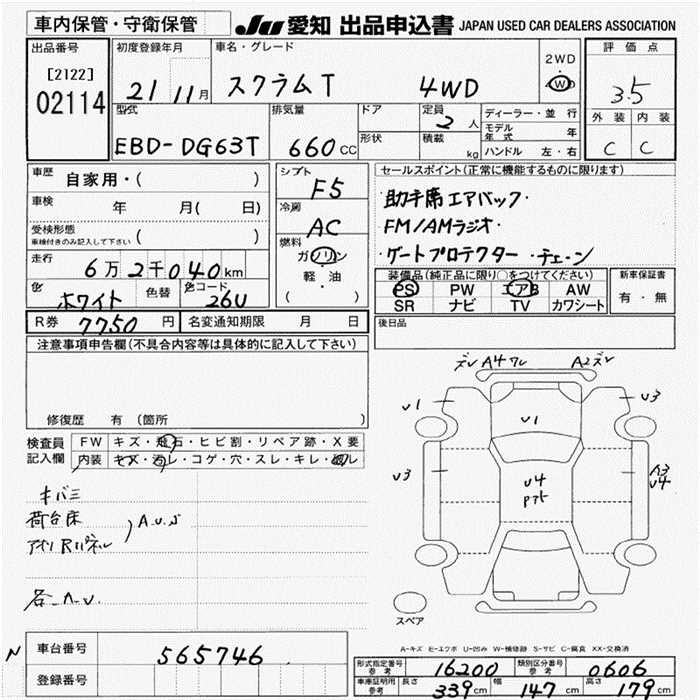 車内保管・守衛保管 JU 愛知 出品申込書 JAPAN USED CAR DEALERS ASSOCIATION
出品番号 初度登録年月 車名・グレード 2WD 評価点
[2122] 02114 21 11月 スクラムT 4WD 4WD 3.5
型式 排気量 ドア 定員 2人 ディーラー・並行 外装 内装
EBD-DG63T 660cc 形状 積載 kg モデル年式 年 C C
ハンドル 左・右
車歴 自家用・( ) シフト F5 セールスポイント(正常に機能するものに限ります)
車検 年 月( 日) 冷房 AC 助手席エアバック・
受検形態 ( ) FM/AMラジオ・
車検付きのみ記入して下さい 燃料 ガソリン ゲートプロテクター・チェーン
走行 6万2千040km 軽・油 装備品(純正品に限り○をつけてください) 新車保証書
色 ホワイト 色替 色コード 26U ( ) PS PW エアB AW 有・無
SR ナビ TV カワシート
R券 7750円 名変通知期限 月 日 後日品
注意事項申告欄(不具合内容等は具体的に記入して下さい)
ズレ A4ワレ A2ズレ
U1 U3
U1
修復歴 有 (箇所 )
検査員記入欄 FW キズ・飛石・ヒビ割・リペア跡・X要
内装 キズ・汚レ・コゲ・穴・スレ・キレ・
U3 U4 A3 U4
キバミ
荷台床
アオリRパネル )A.U.S
各-A.U.
スペア
A-キズ E-エクボ U-凹み W-補修跡 S-サビ C-腐食 XX-交換済
N 車台番号 565746 形式指定番号 参考 16200 類別区分番号 参考 0606
登録番号 車庫証明用 参考 長さ 339cm 幅 147cm 高さ 179cm